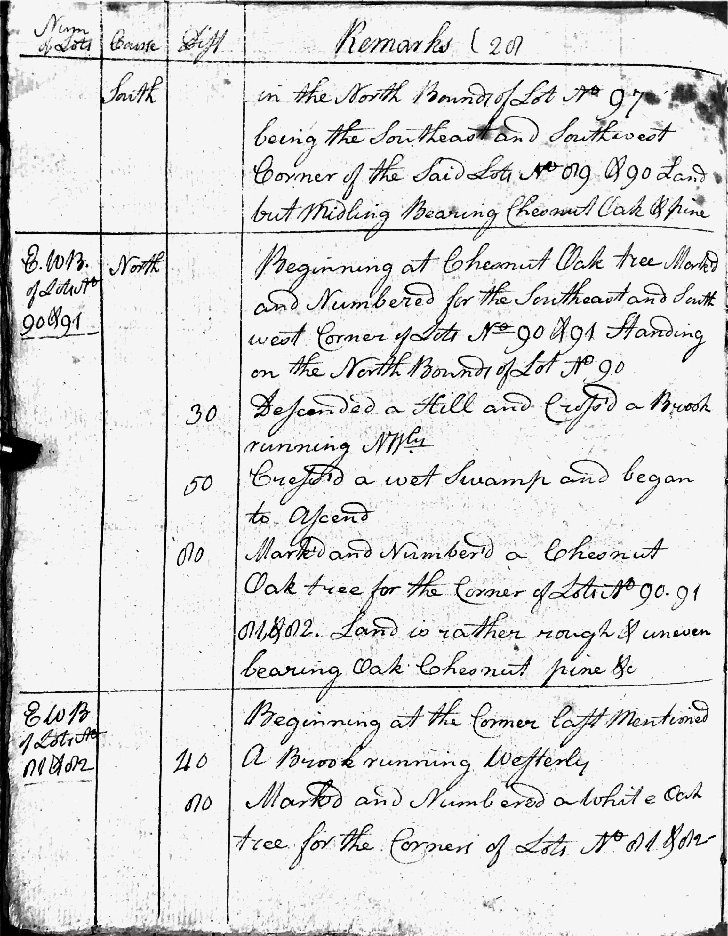 Num of Lots Course Dist Remarks (28
South in the North Bounds of Lot No 97
being the Southeast and Southwest
Corner of the Said Lots No 89 & 90 Land
but Midling Bearing Chesnut Oak & pine
E.W B. of Lots No 90 & 91 North Beginning at Chesnut Oak tree Mark'd
and Numbered for the Southeast and South
west Corner of Lots No 90 & 91 Standing
on the North Bounds of Lot No 90
30 Descended a Hill and Cross'd a Brook
running NWly
50 Cross'd a wet Swamp and began
to Ascend
80 Mark'd and Number'd a Chesnut
Oak tree for the Corner of Lots No 90. 91
81 & 82. Land is rather rough & uneven
bearing Oak Chesnut pine &c
E W B of Lots No 81 & 82 Beginning at the Corner last Mentioned
40 A Brook running Westerly
80 Mark'd and Numbered a White Oak
tree for the Corners of Lots No 81 & 82